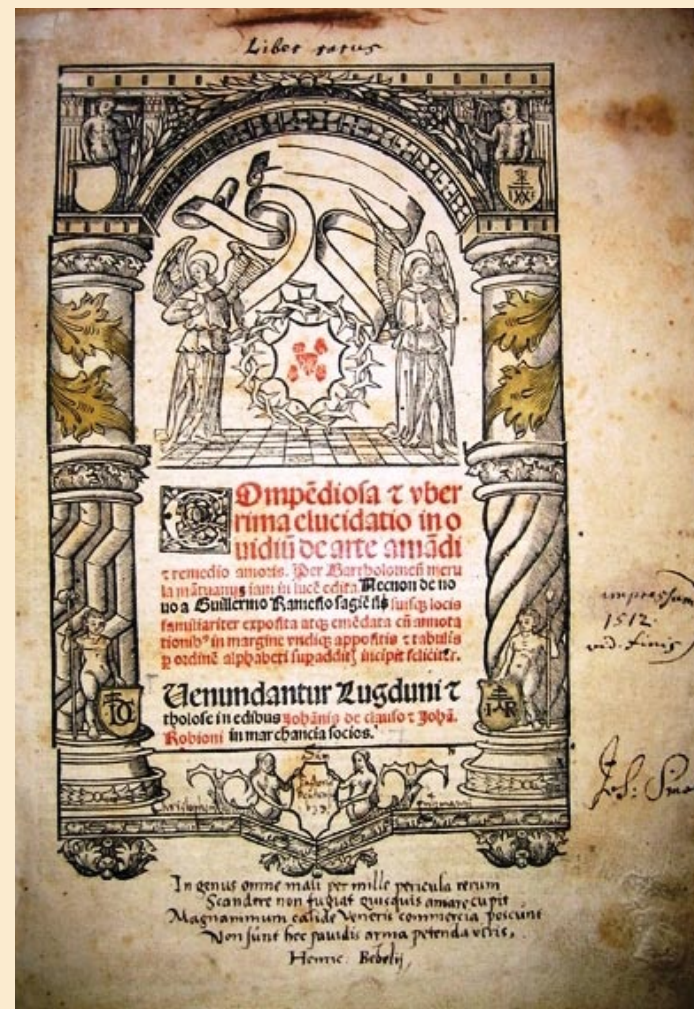 Liber rarus
COmpēdiosa ⁊ vber
rima elucidatio in o
uidiū de arte amādi
⁊ remedio amoris. Per Bartholomeū meru
la mātuanus iam in lucē edita. Necnon de no
uo a Guillermo Ramesio suisq; locis
familiariter exposita atq; emēdata cū annota
tionibꝰ in margine vndiq; appositis ⁊ tabulis
ꝑ ordinē alphabeti incipit feliciter.
Uenundantur Lugduni ⁊
tholose in edibus Johānis de clauso ⁊ Johā.
Robioni in marchancia socios.
impressum
1512.
vid. finis
Sum
In genus omne mali per mille pericula rerum
Scandere non fugiat quisquis amare cupit
Magnanimum calide Veneris commercia poscunt
Non sunt hec pauidis arma petenda viris.
Henric. Bebelij,